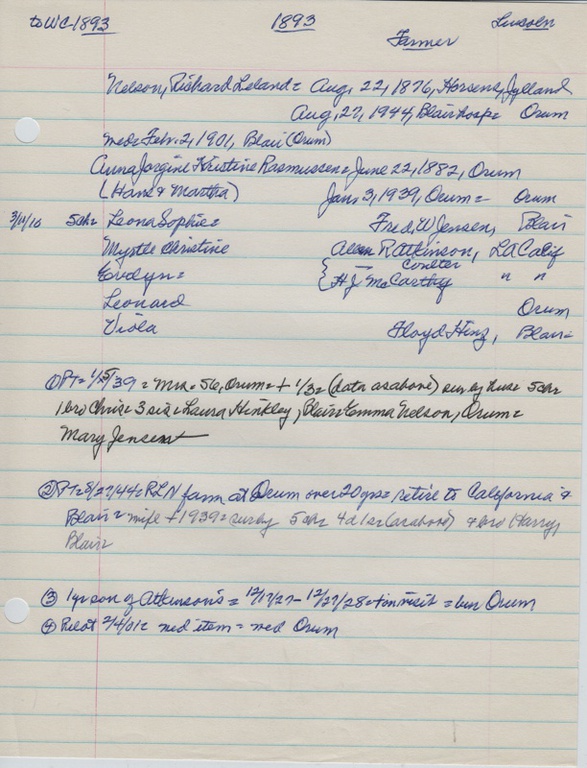 to WC-1893 1893 Lincoln
Farmer
Nelson, Richard Leland = Aug. 22, 1876, Horsens, Jylland
Aug. 27, 1944, Blair hosp = Orum
med = Febr. 2, 1901, Blair (Orum)
Anna Jorgine Kristine Rasmussen = June 22, 1882, Orum
(Hans & Martha) Jan. 3, 1939, Orum = Orum
3/11/10 5ch = Leona Sophie = Fred W Jensen, Blair
Myrtle Christine Allen R Atkinson, LA Calif
Evelyn = Coulter
H J McCarthy " "
Leonard Orum
Viola Floyd Hinz, Blair =
① PT = 1/5/39 = Mrs = 56, Orum = + 1/3 = (data as above) sur by hus = 5ch =
1 bro Chris = 3 sis = Laura Hinkley, Blair = Emma Nelson, Orum =
Mary Jensen +
② PT = 8/27/44 = RLN farm at Orum over 20 yrs = retire to California &
Blair = wife + 1939 = sur by 5ch = 4d 1s (as above) & bro Harry,
Blair =
③ 1 yr son of Atkinson's = 12/17/27 - 12/27/28 = + on visit = bur Orum
④ Pilot 2/4/01 = med item = med Orum